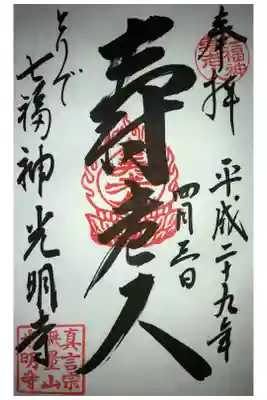 奉拝
平成二十九年
四月三日
寿老人
とりで
七福神光明寺
真言宗
無量山
光明寺